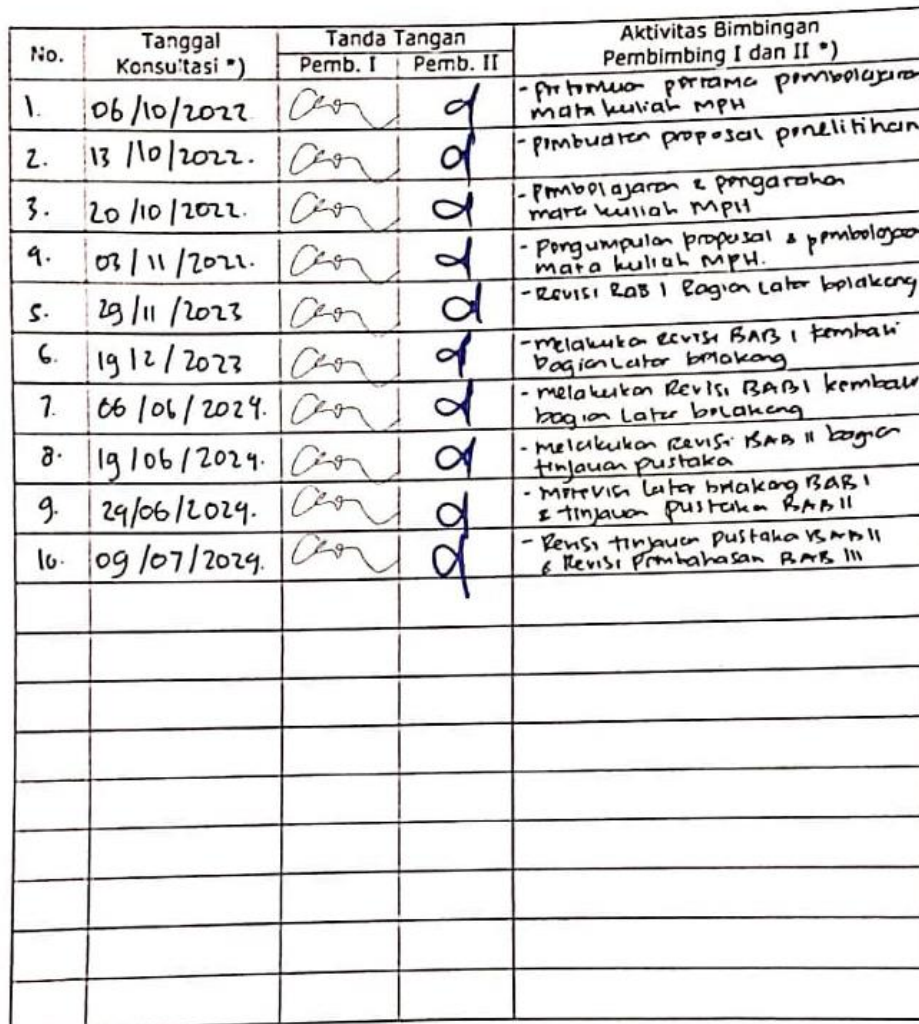 No.
Tanggal
Konsultasi *)
Tanda Tangan
Pemb. I
Pemb. II
Aktivitas Bimbingan
Pembimbing I dan II *)
1.
06/10/2022
- pertemuan pertama pembelajaran
mata kuliah MPH
2.
13/10/2022.
- pembuatan proposal penelitihan
3.
20/10/2022.
- pembelajaran & pengarahan
mata kuliah MPH
4.
03/11/2022.
- pengumpulan proposal & pembelajaran
mata kuliah MPH.
5.
29/11/2023
- Revisi BAB 1 Bagian Latar belakang
6.
1912/2023
- melakukan revisi BAB 1 kembali
bagian Latar belakang
7.
06/06/2024.
- melakukan Revisi BAB I kembali
bagian Latar belakang
8.
19/06/2024.
- melakukan revisi BAB II bagian
tinjauan pustaka
9.
24/06/2024.
- merevisi latar belakang BAB I
& tinjauan pustaka BAB II
10.
09/07/2024.
- Revisi tinjauan pustaka BAB II
& Revisi Pembahasan BAB III